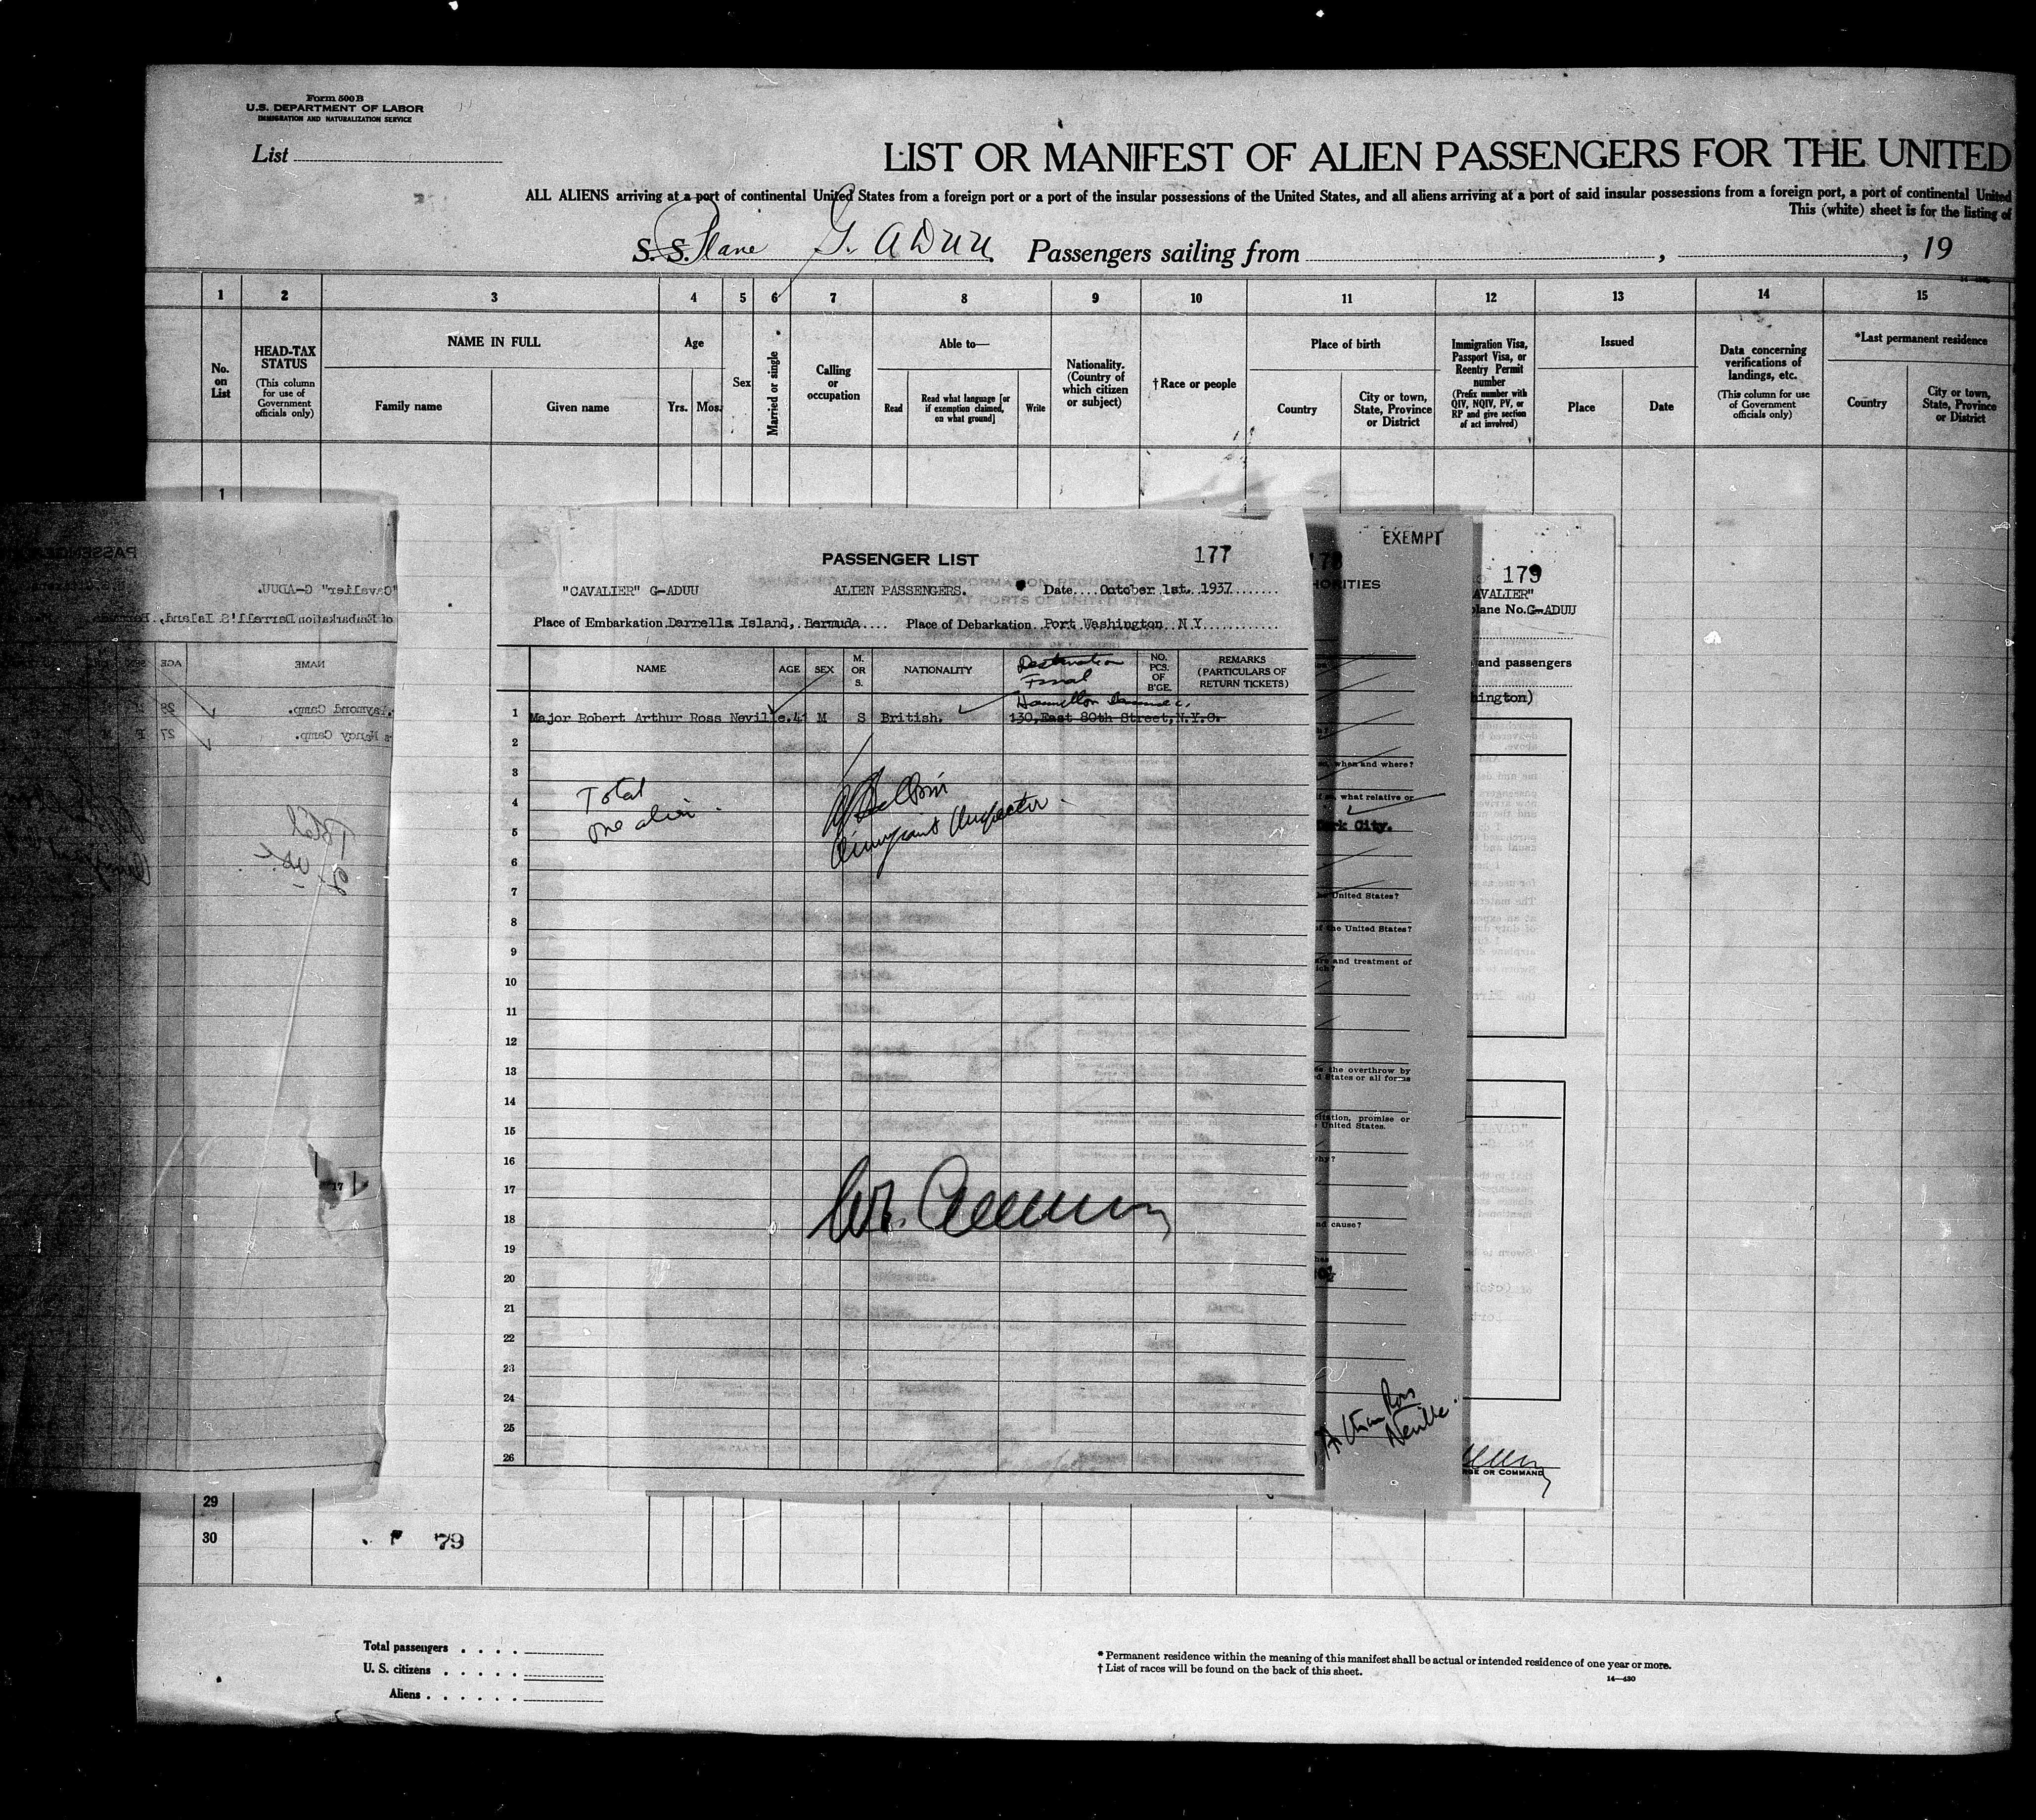 Form 500 B
U.S. DEPARTMENT OF LABOR
IMMIGRATION AND NATURALIZATION SERVICE
List
LIST OR MANIFEST OF ALIEN PASSENGERS FOR THE UNITED
ALL ALIENS arriving at a port of continental United States from a foreign port or a port of the insular possessions of the United States, and all aliens arriving at a port of said insular possessions from a foreign port, a port of continental United
This (white) sheet is for the listing of
S. S. Plane G. ADUU Passengers sailing from , , 19
1 2 3 4 5 6 7 8 9 10 11 12 13 14 15
No. on List
HEAD-TAX STATUS
(This column for use of Government officials only)
NAME IN FULL
Family name
Given name
Age
Yrs. Mos.
Sex
Married or single
Calling or occupation
Able to—
Read
Read what language [or if exemption claimed, on what ground]
Write
Nationality. (Country of which citizen or subject)
†Race or people
Place of birth
Country
City or town, State, Province or District
Immigration Visa, Passport Visa, or Reentry Permit number
(Prefix number with QIV, NQIV, PV, or RP and give section of act involved)
Issued
Place
Date
Data concerning verifications of landings, etc.
(This column for use of Government officials only)
*Last permanent residence
Country
City or town, State, Province or District
1
"Cavalier" G-ADUU.
of Embarkation Darrell's Island,
NAME AGE
Raymond Camp. 28
Nancy Camp. 27 F
Total
2 U.S.C
17
PASSENGER LIST
177
"CAVALIER" G-ADUU ALIEN PASSENGERS. Date....October 1st. 1937.......
Place of Embarkation.Darrells Island, Bermuda.... Place of Debarkation. Port Washington N Y............
NAME AGE SEX M. OR S. NATIONALITY Destination Final NO. PCS. OF B'GE. REMARKS (PARTICULARS OF RETURN TICKETS)
Hamilton
1 Major Robert Arthur Ross Neville.41 M S British. 130,East 80th Street,N.Y.C.
2
3
4
5
6
7
8
9
10
11
12
13
14
15
16
17
18
19
20
21
22
23
24
25
26
Total
one alien
Immigrant Inspector
EXEMPT
178
HORITIES
when and where?
what relative or
York City.
United States?
of the United States?
and treatment of
the overthrow by
States or all forms
promise or
United States.
why?
cause?
Arthur Ross
Neville.
179
AVALIER"
plane No.G-ADUU
and passengers
hington)
OR COMMAND
29
30
79
Total passengers . . . .
U. S. citizens . . . . .
Aliens . . . . . .
* Permanent residence within the meaning of this manifest shall be actual or intended residence of one year or more.
† List of races will be found on the back of this sheet.
14—430